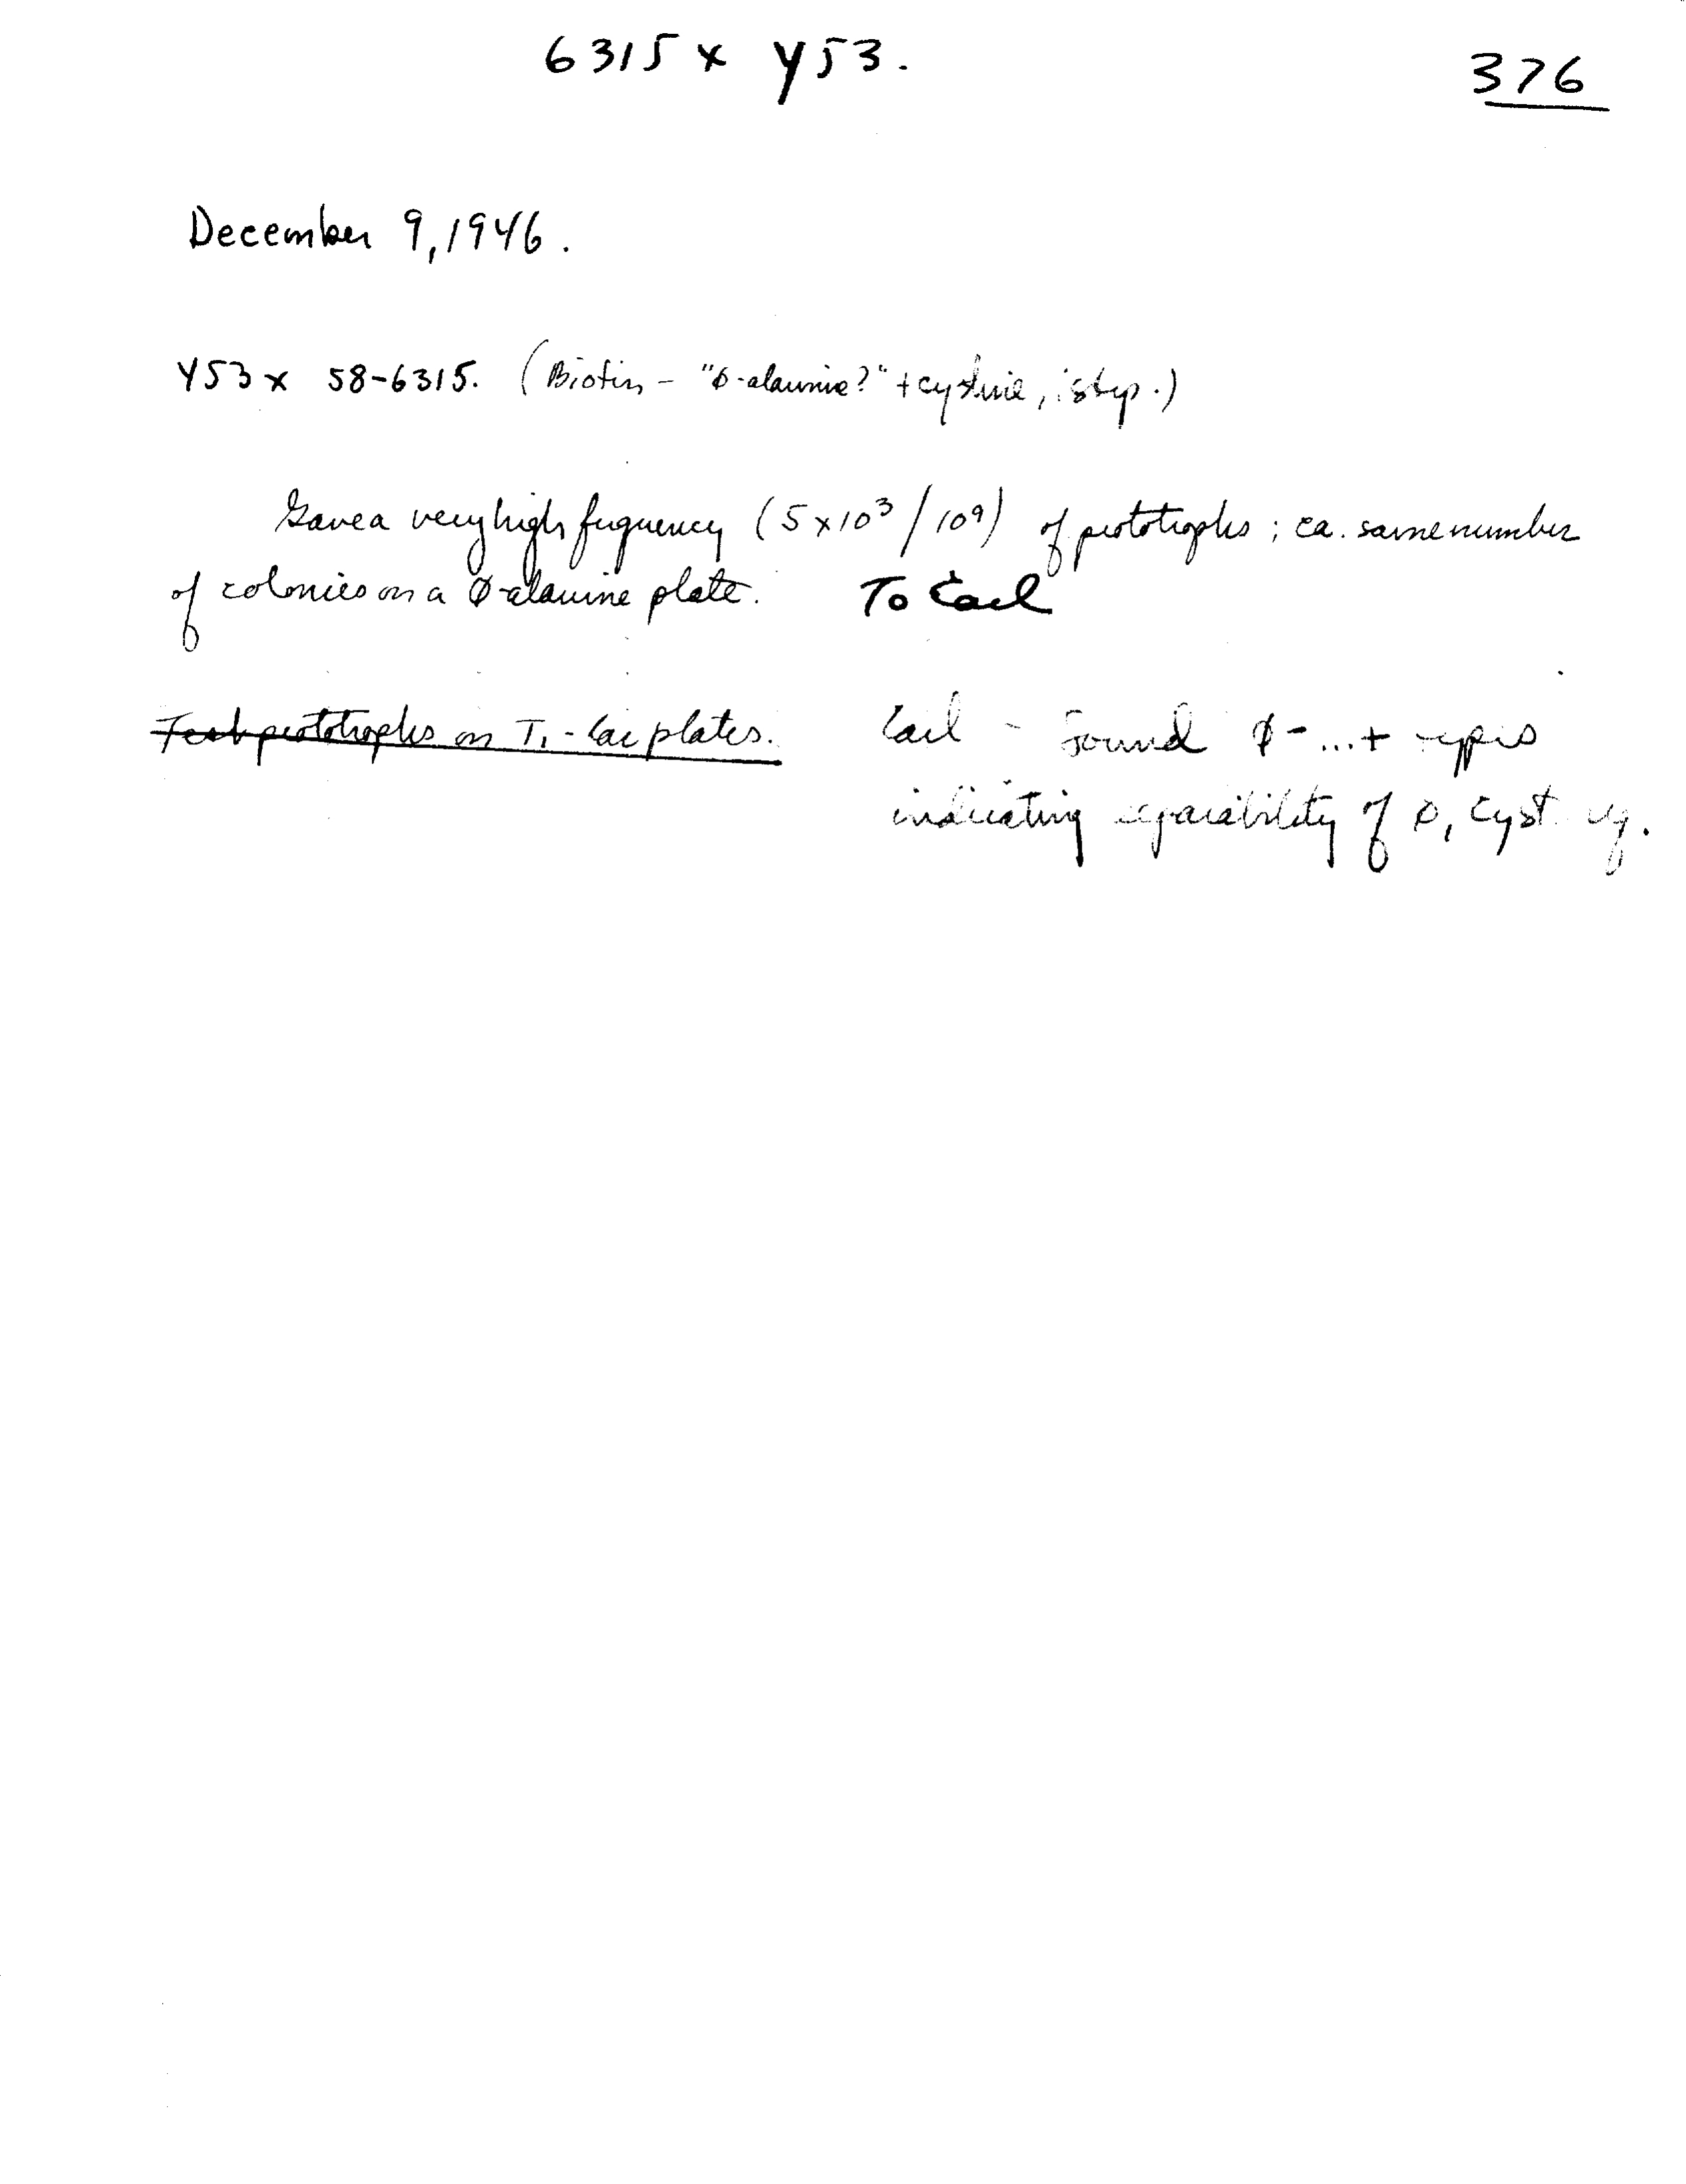 6315 x Y53.
376
December 9, 1946.
Y53 x 58-6315. (Biotin - "ø-alanine?" + cystine, 1 step.)
Gave a very high frequency (5 x 10³ / 10⁹) of prototrophs ; ca. same number
of colonies on a ø-alanine plate. To Carl
Test prototrophs on T₁ - Lac plates.
Carl - Found ø - ... + types
indicating separability of ø, cyst.